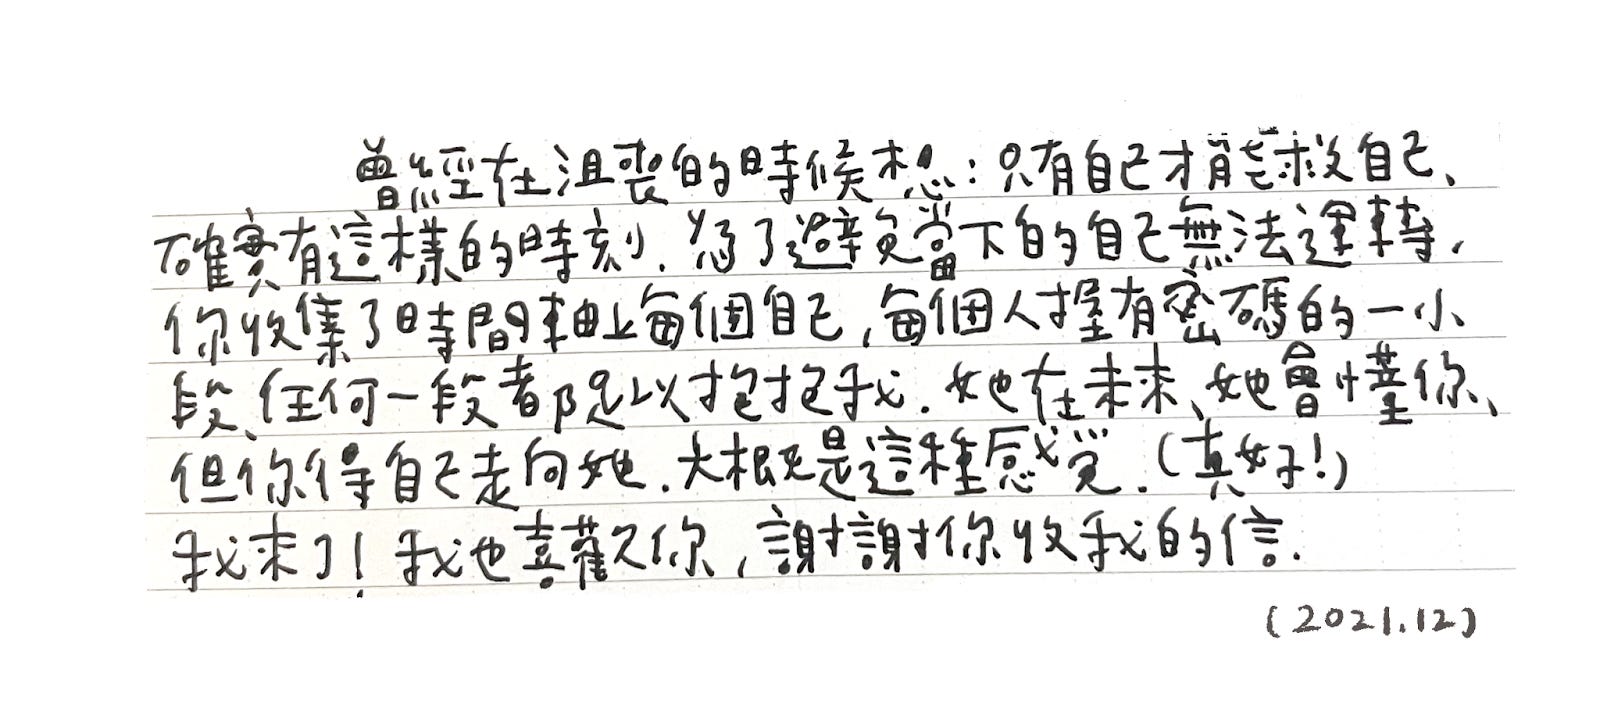 曾經在沮喪的時候想：只有自己才能救自己、
確實有這樣的時刻．為了避免當下的自己無法運轉，
你收集了時間軸上每個自己，每個人握有密碼的一小
段、任何一段都足以抱抱我．她在未來、她會懂你、
但你得自己走向她．大概是這種感覺．（真好！）
我來了！我也喜歡你，謝謝你收我的信．
（2021.12）